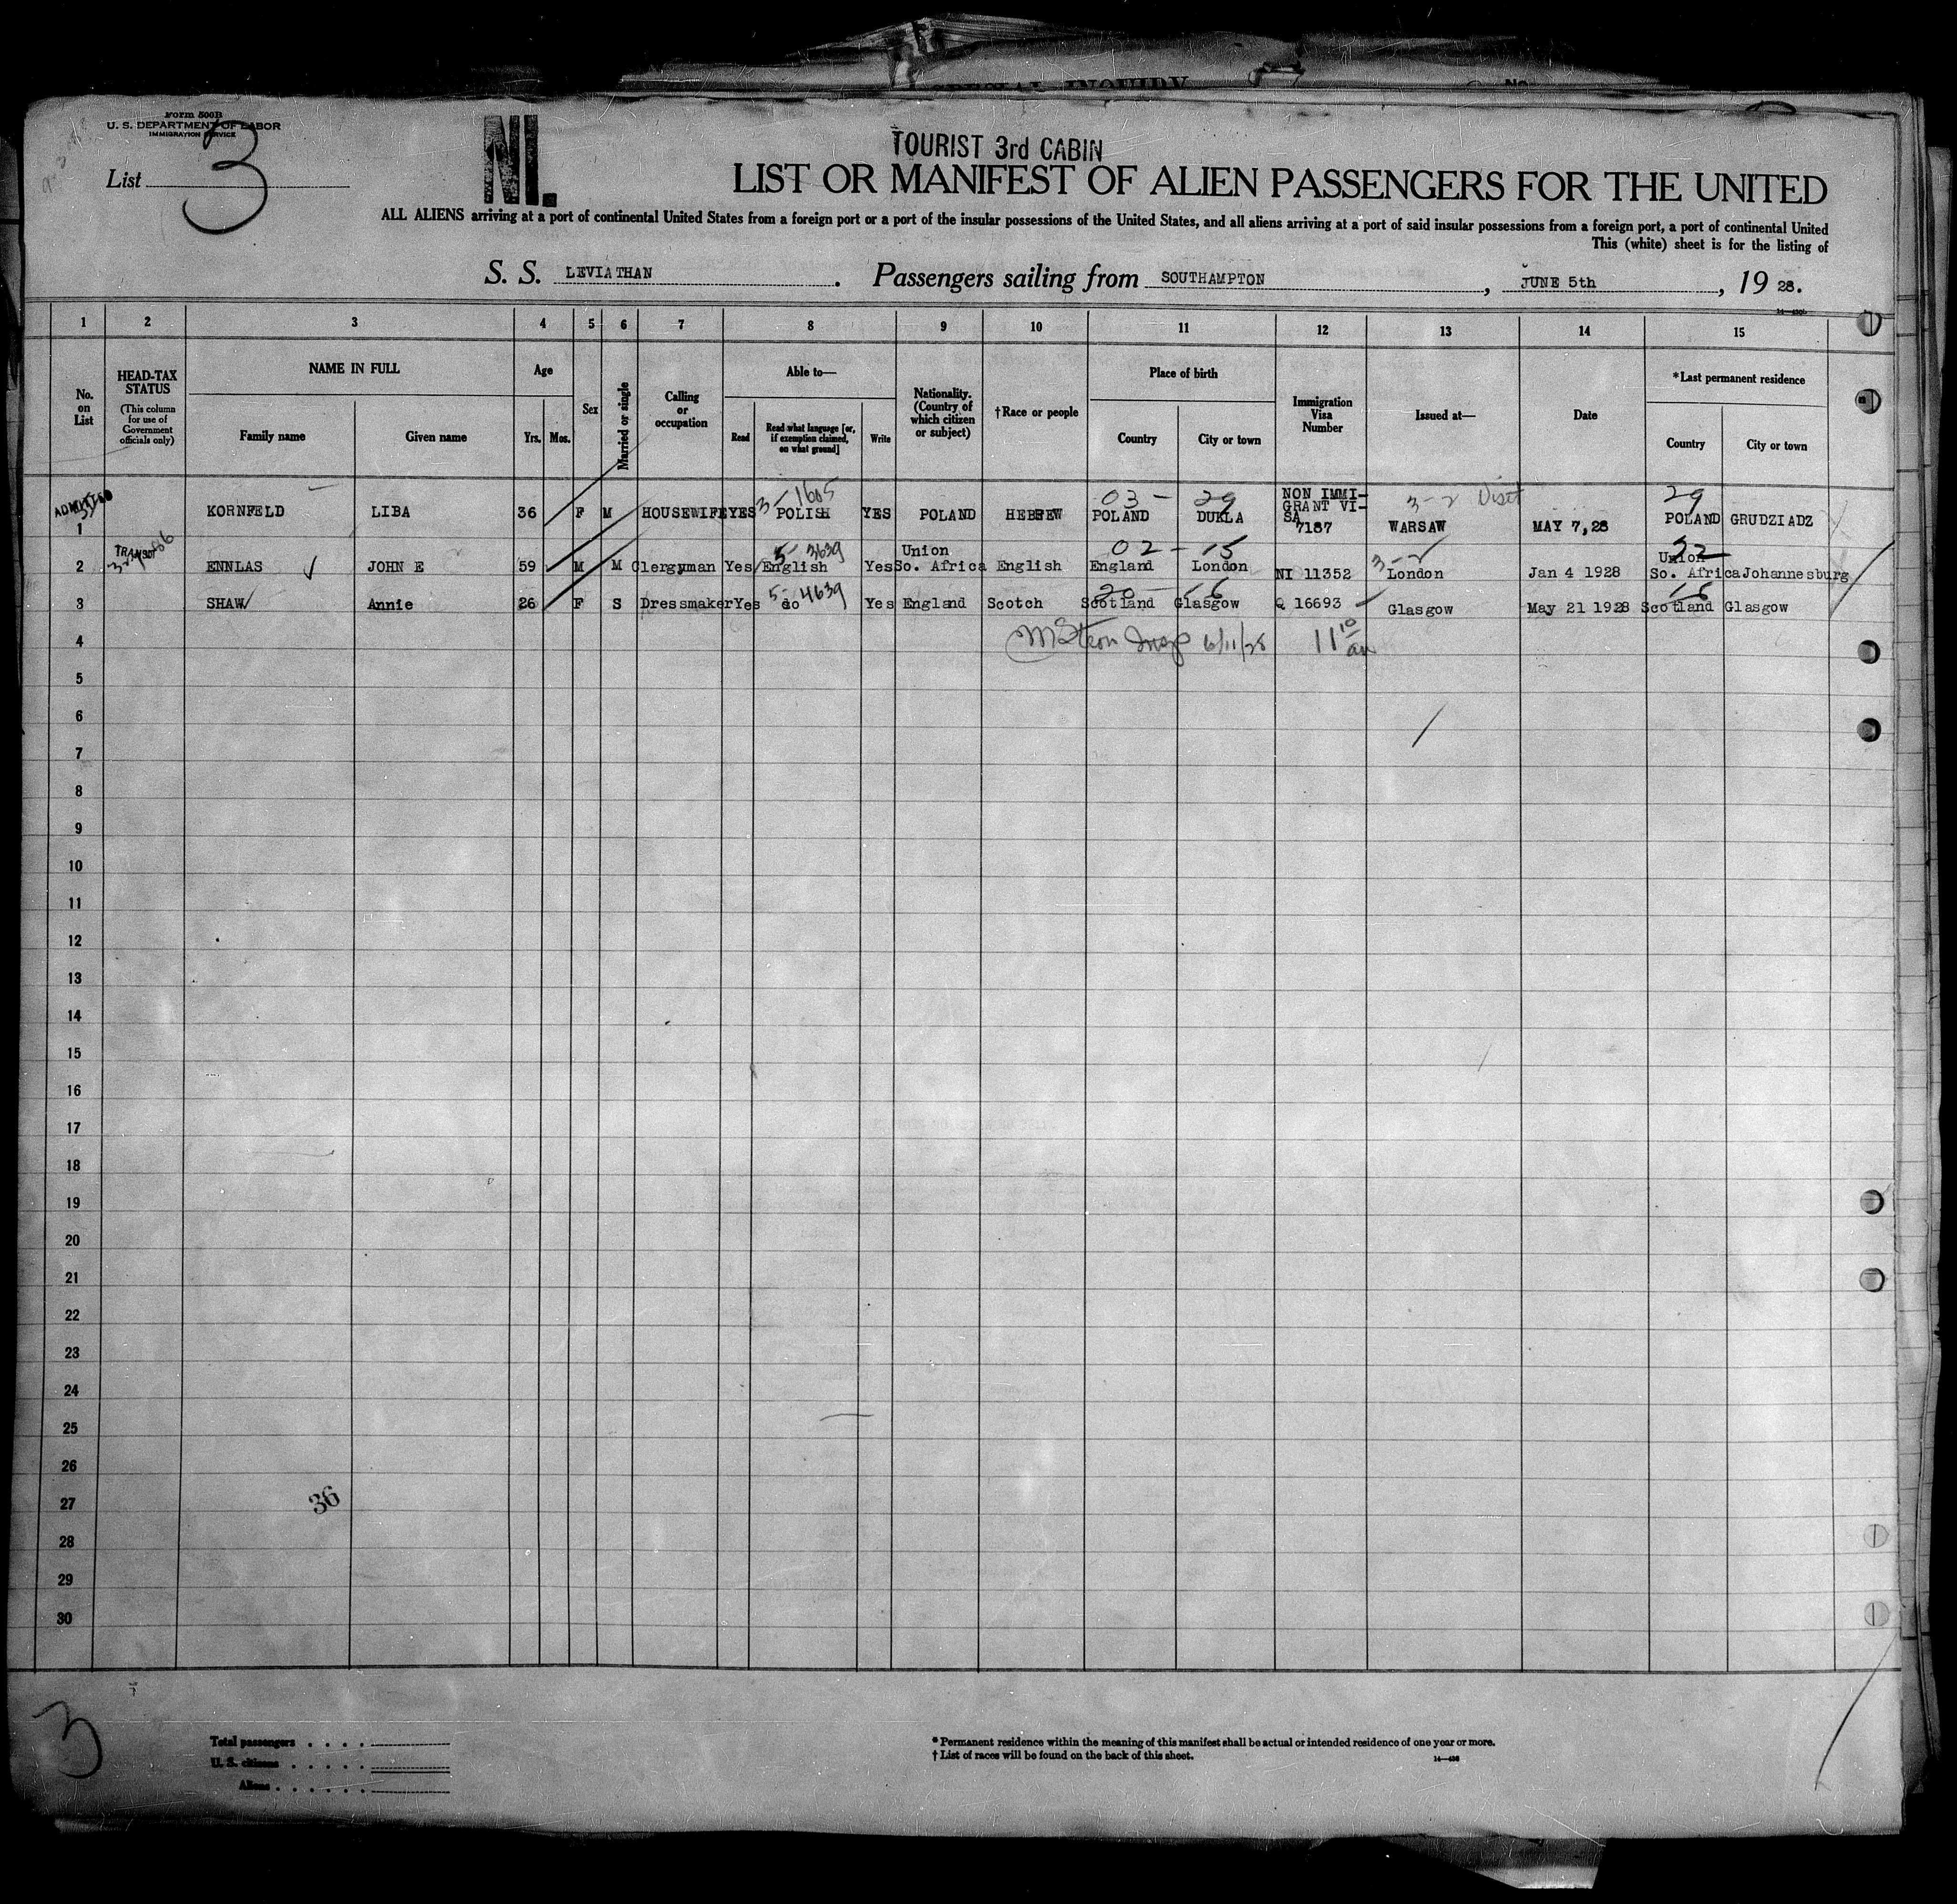 SPECIAL INQUIRY
No
Form 500B
U. S. DEPARTMENT OF LABOR
IMMIGRATION SERVICE
List 3
NI.
TOURIST 3rd CABIN
LIST OR MANIFEST OF ALIEN PASSENGERS FOR THE UNITED
ALL ALIENS arriving at a port of continental United States from a foreign port or a port of the insular possessions of the United States, and all aliens arriving at a port of said insular possessions from a foreign port, a port of continental United
This (white) sheet is for the listing of
S. S. LEVIATHAN. Passengers sailing from SOUTHAMPTON, JUNE 5th, 19 28.
1 2 3 4 5 6 7 8 9 10 11 12 13 14 15
No. on List
HEAD-TAX STATUS
(This column for use of Government officials only)
NAME IN FULL
Family name Given name
Age
Yrs. Mos.
Sex
Married or single
Calling or occupation
Able to—
Read
Read what language [or, if exemption claimed, on what ground]
Write
Nationality. (Country of which citizen or subject)
†Race or people
Place of birth
Country City or town
Immigration Visa Number
Issued at—
Date
*Last permanent residence
Country City or town
ADMITTED
3-1605
03 - 29
3-2 Visit
29
1 KORNFELD LIBA 36 F M HOUSEWIFE YES POLISH YES POLAND HEBREW POLAND DUKLA NON IMMIGRANT VISA 7187 WARSAW MAY 7,28 POLAND GRUDZIADZ
TRANSIT
5-3639
02 - 15
3-2
22
2 ENNLAS JOHN E 59 M M Clergyman Yes English Yes Union So. Africa English England London NI 11352 London Jan 4 1928 Union So. Africa Johannesburg
5-4639
3 SHAW Annie 26 F S Dressmaker Yes do Yes England Scotch Scotland Glasgow Q 16693 Glasgow May 21 1928 Scotland Glasgow
4 Insp 6/11/28 11 10 am
5
6
7
8
9
10
11
12
13
14
15
16
17
18
19
20
21
22
23
24
25
26
27
36
28
29
30
3
Total passengers
U. S. citizens
Aliens
* Permanent residence within the meaning of this manifest shall be actual or intended residence of one year or more.
† List of races will be found on the back of this sheet.